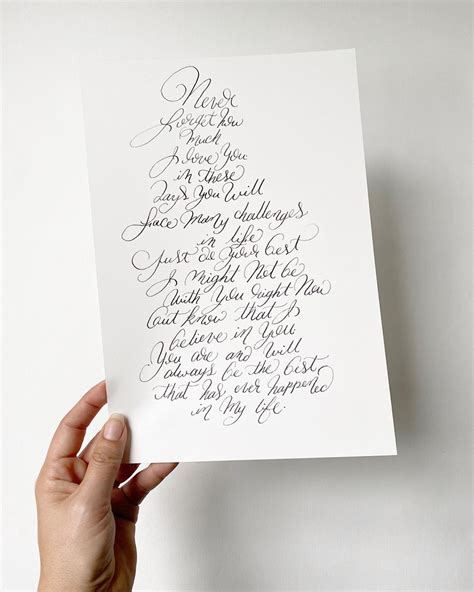 Never
forget how
much
I love You
in these
days You Will
face Many challenges
in life
Just do your best
I might Not be
With You right Now
but know that I
believe in You
You are and Will
always be the best
that has ever happened
in My life.